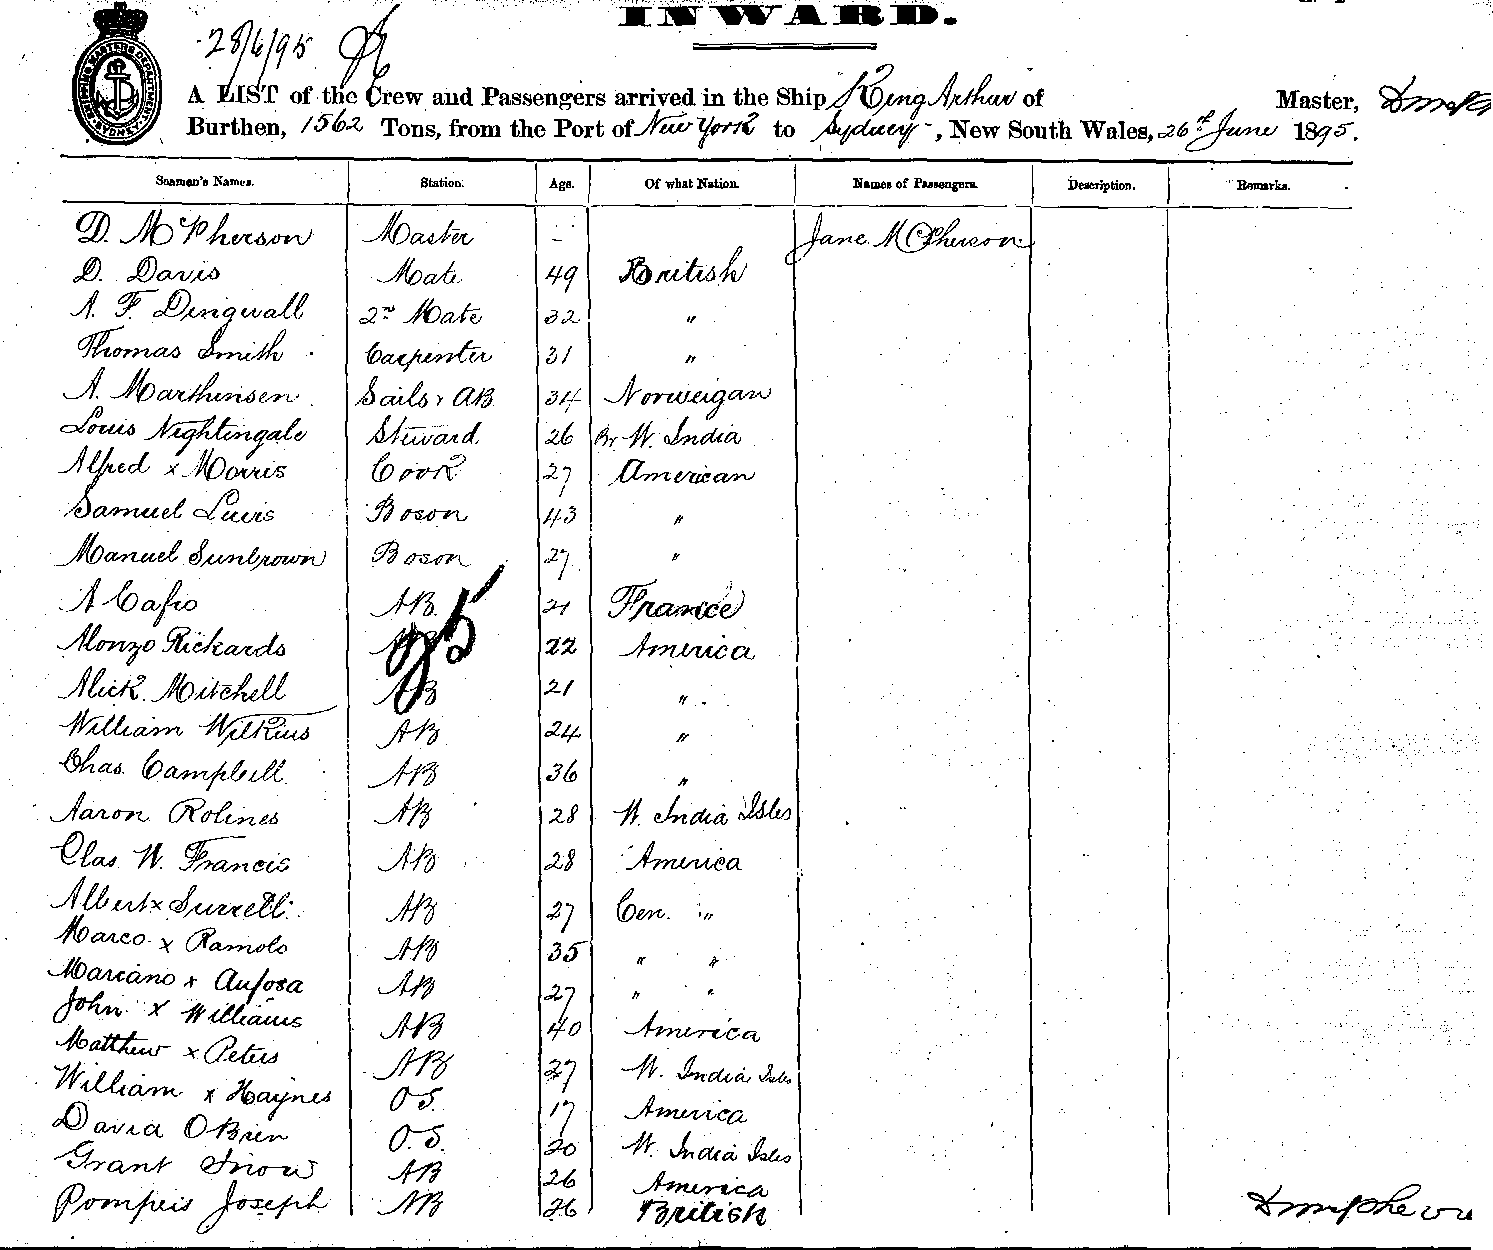 INWARD.
28/6/95
A LIST of the Crew and Passengers arrived in the Ship King Arthur of Master,
Burthen, 1562 Tons, from the Port of New York to Sydney, New South Wales, 26th June 1895.
Seamen's Names. Station. Age. Of what Nation. Names of Passengers. Description. Remarks.
D. McPherson Master - Jane McPherson
D. Davis Mate 49 British
A. F. Dingwall 2nd Mate 32 "
Thomas Smith Carpenter 31 "
A. Marthinsen Sails & AB 34 Norweigan
Louis Nightingale Steward 26 Br. W. India
Alfred x Morris Cook 27 American
Samuel Luis Boson 43 "
Manuel Sunbrown Boson 27 "
A Cafio AB 21 France
Alonzo Rickards AB 22 America
Alick Mitchell AB 21 "
William Wilkins AB 24 "
Chas. Campbell AB 36 "
Aaron Rolines AB 28 W. India Isles
Clas. W. Francis AB 28 America
Albert x Surrell AB 27 Cen. "
Marco x Ramolo AB 35 " "
Marcano x Aufosa AB 27 " "
John x Williams AB 40 America
Matthew x Peters AB 27 W. India Isles
William x Haynes O.S. 17 America
David OBrien O.S. 20 W. India Isles
Grant Snow AB 26 America
Pompeis Joseph AB 26 British
95